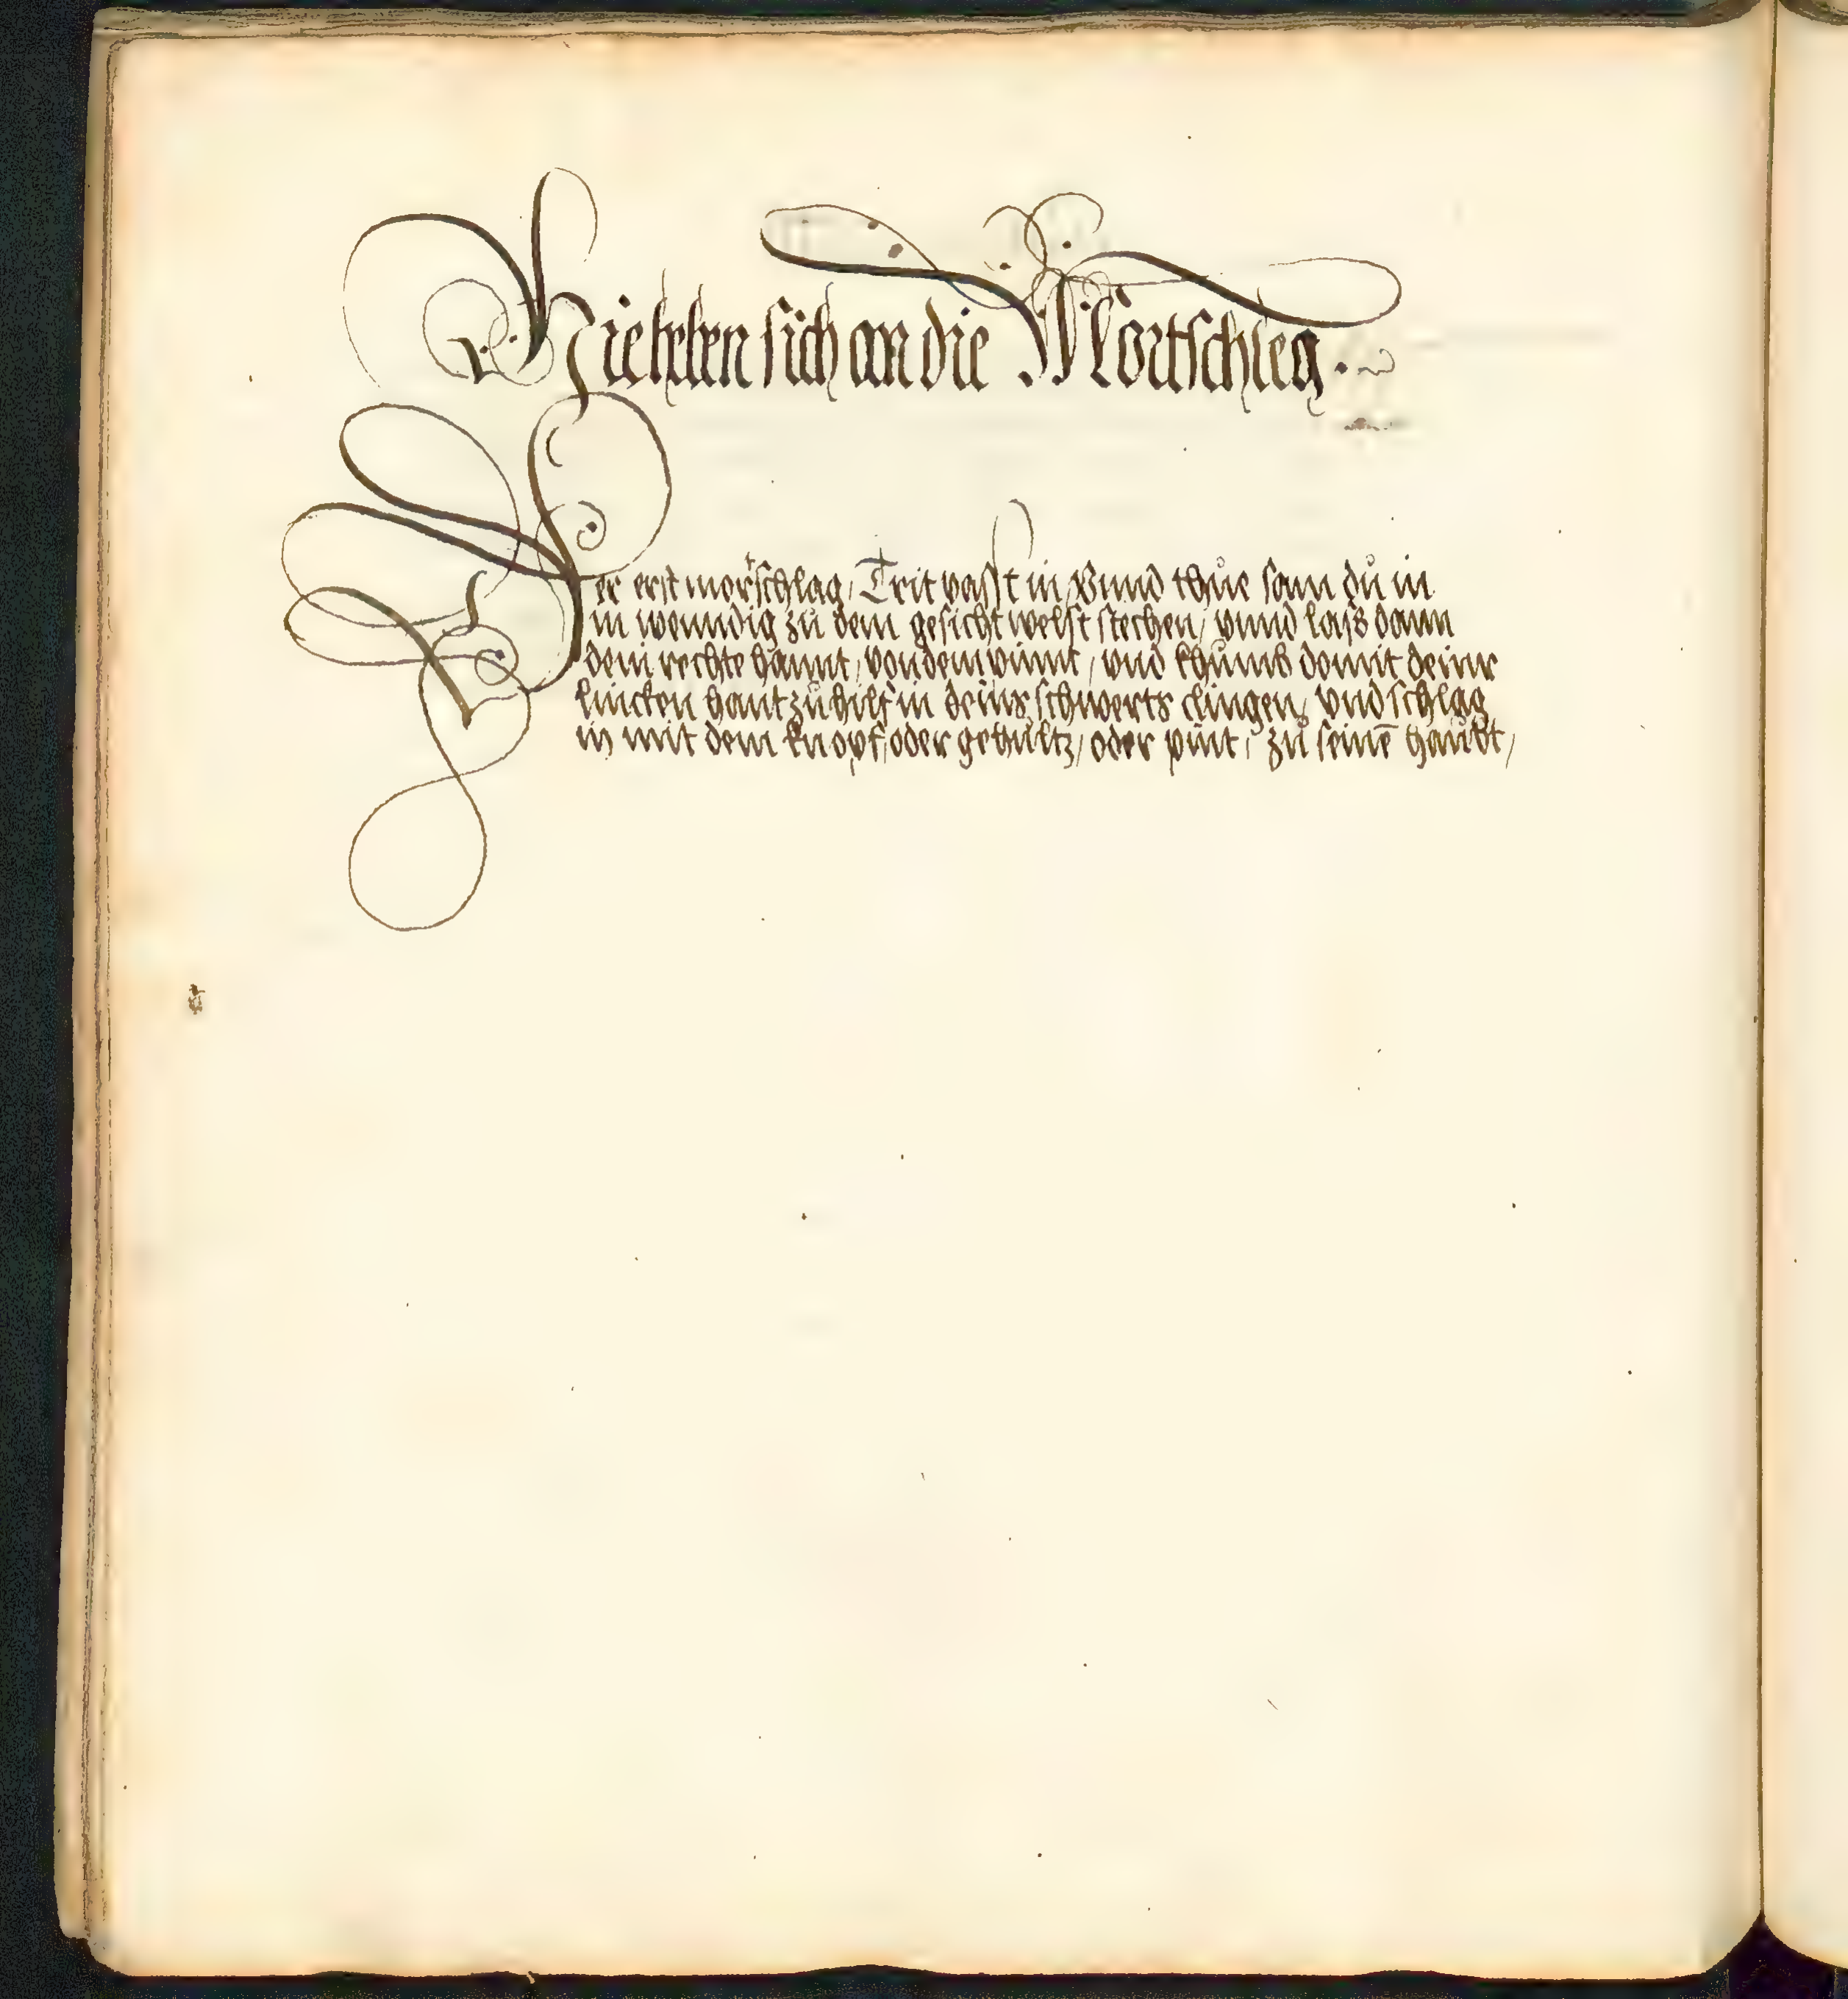 Hie heben sich an die Mortschleg.
Der erst mortschlag / Trit vasst in / Vnnd thue sam dů in
in wenndig zů dem gesicht welst stechen / vnnd laß dann
dein rechte hannt / von dem pinnt / vnd khůmb domit deinr
lincken hant zů hilf in deins schwerts clingen / vnd schlag
in mit dem knopf / oder gehültz / oder pint / zů seinē haubt /